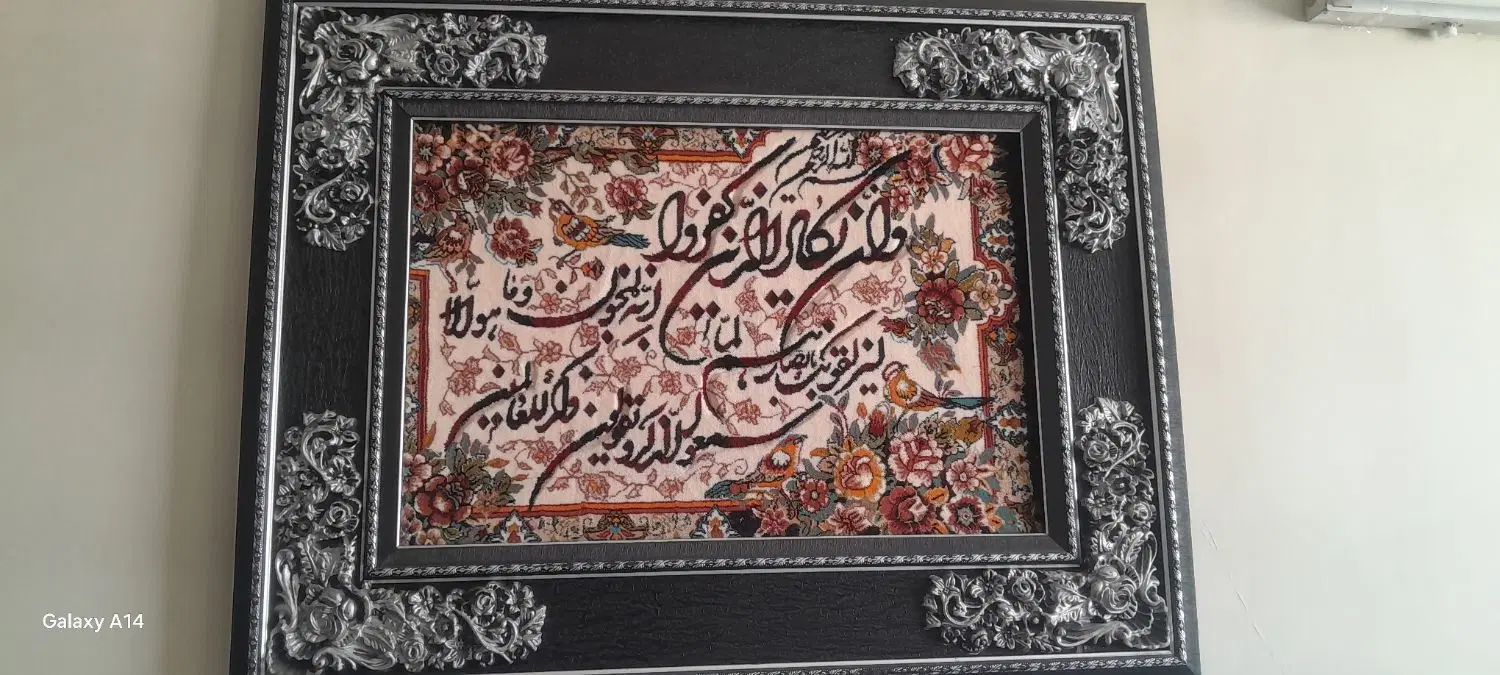 بسم الله الرحمن الرحیم
وان یکاد الذین کفروا
لیزلقونک بابصارهم لما
سمعوا الذکر و یقولون
انه لمجنون وما هو الا
ذکر للعالمین
Galaxy A14